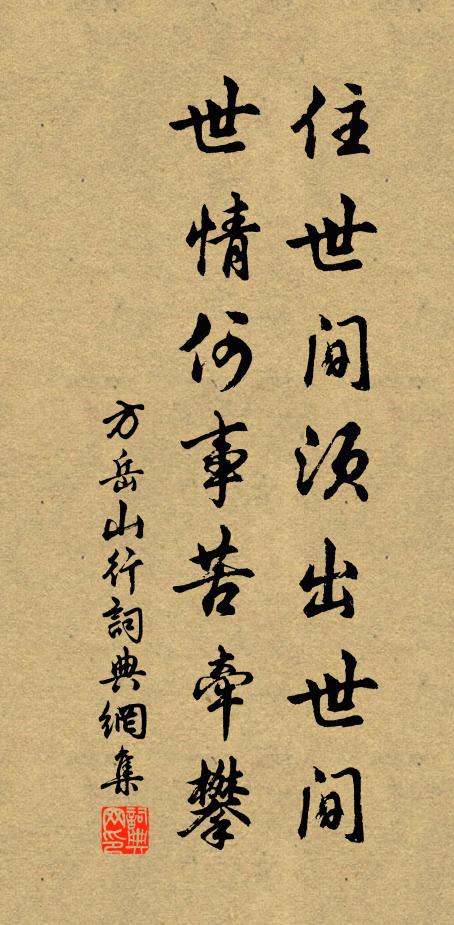 住世间须出世间
世情何事苦牵攀
方岳山行詞典網集
詞典
网印